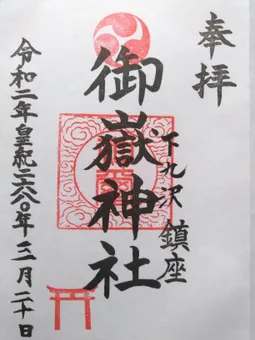 奉拝
下九沢 鎮座
御嶽神社
令和二年皇紀二六八〇年二月二十日